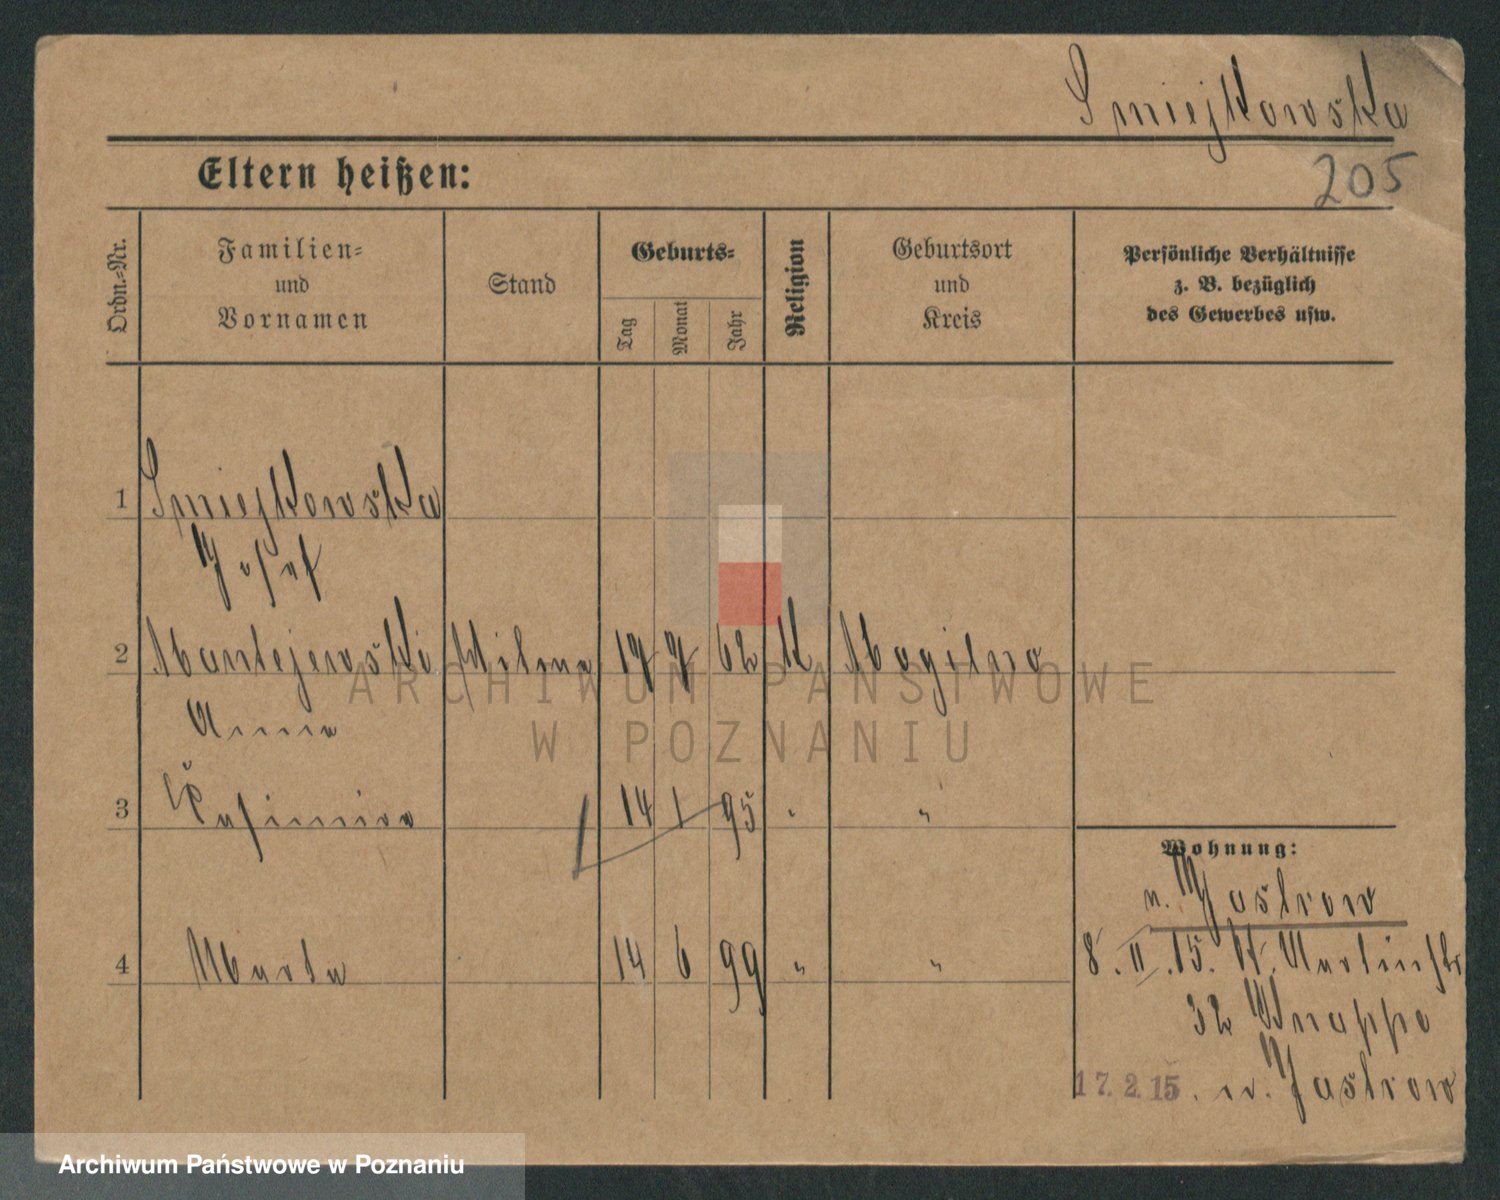 Smiejkowska
205
Eltern heißen:
Ordn.-Nr.
Familien-
und
Vornamen
Stand
Geburts-
Tag
Monat
Jahr
Religion
Geburtsort
und
Kreis
Persönliche Verhältnisse
z. B. bezüglich
des Gewerbes usw.
1 Smiejkowska
Josef
2 Mantejewski 17 7 62 K Mogilno
Anna
3 Kasimira 14 1 95 " "
4 Marta 14 6 99 " "
Wohnung:
n. Jastrow
8. II. 15. Martinstr
32 Knappe
17.2.15. n. Jastrow
ARCHIWUM PAŃSTWOWE
W POZNANIU
Archiwum Państwowe w Poznaniu